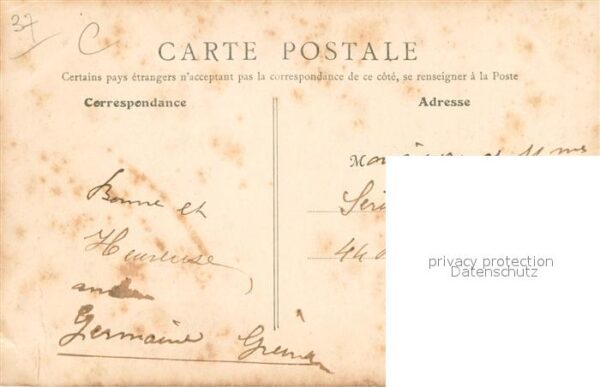 37 C
CARTE POSTALE
Certains pays étrangers n'acceptant pas la correspondance de ce côté, se renseigner à la Poste
Correspondance
Adresse
Bonne et
Heureuse
Germaine
44
privacy protection
Datenschutz